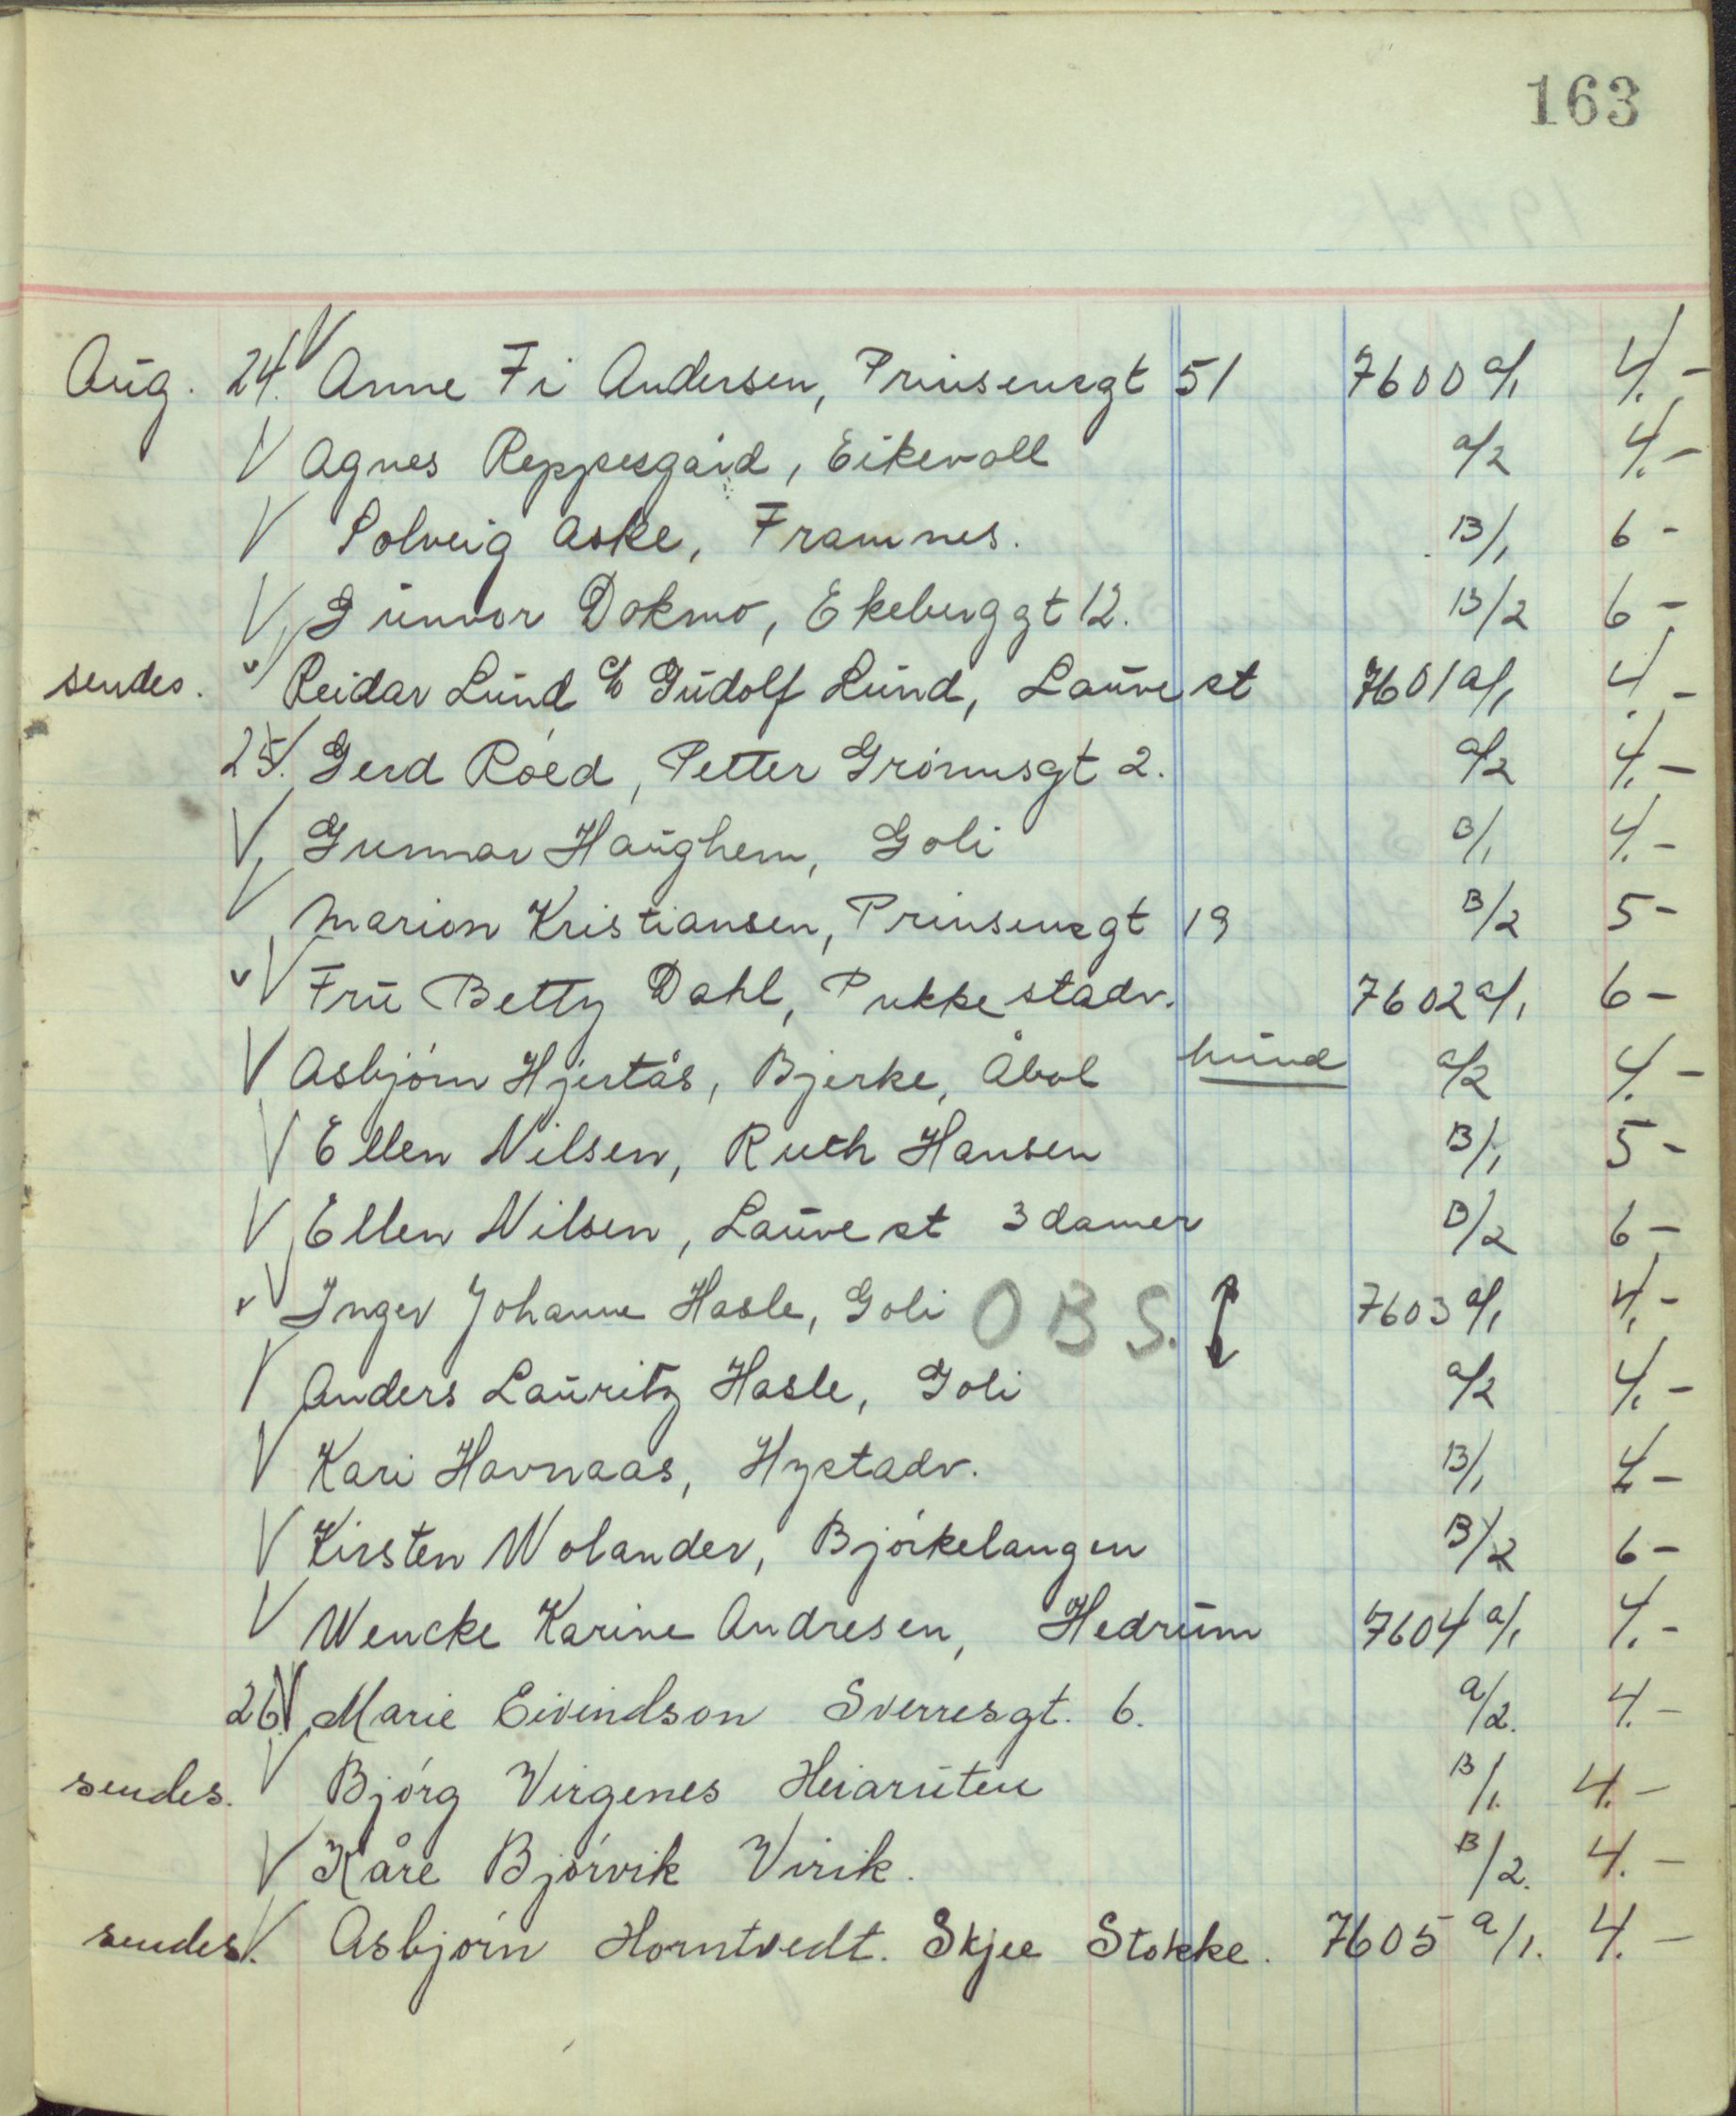 163
Aug. 24. V Anne Fi Andersen, Prinsensgt 51 7600 a/1 4.-
V Agnes Reppesgård, Eikevoll a/2 4.-
V Solveig Aske, Framnes. B/1 6-
V Gunvor Dokmo, Ekeberggt 12. B/2 6-
sendes. v Reidar Lund c/o Gudolf Lund, Lauve st 7601 a/1 4.-
25. V Gerd Röed, Petter Grönnsgt 2. a/2 4.-
V Gunnar Haughem, Goli B/1 4.-
V Marion Kristiansen, Prinsensgt 19 B/2 5-
v V Fru Betty Dahl, Pukkestadv. 7602 a/1 6-
V Asbjörn Hjertås, Bjerke, Åbol hund a/2 4.-
V Ellen Nilsen, Ruth Hansen B/1 5-
V Ellen Nilsen, Lauve st 3 damer B/2 6-
v V Inger Johanne Hasle, Goli OBS. 7603 a/1 4.-
V Anders Lauritz Hasle, Goli a/2 4.-
V Kari Havnaas, Hystadv. B/1 4-
V Kirsten Wolander, Björkelangen B/2 6-
V Wencke Karine Andresen, Hedrum 7604 a/1 4.-
26. V Marie Eivindson Sverresgt. 6. a/2. 4.-
sendes. V Björg Virgenes Heiaruten B/1. 4.-
V Kåre Björvik Virik. B/2. 4.-
sendes. V Asbjörn Horntvedt. Skjee Stokke. 7605 a/1. 4.-